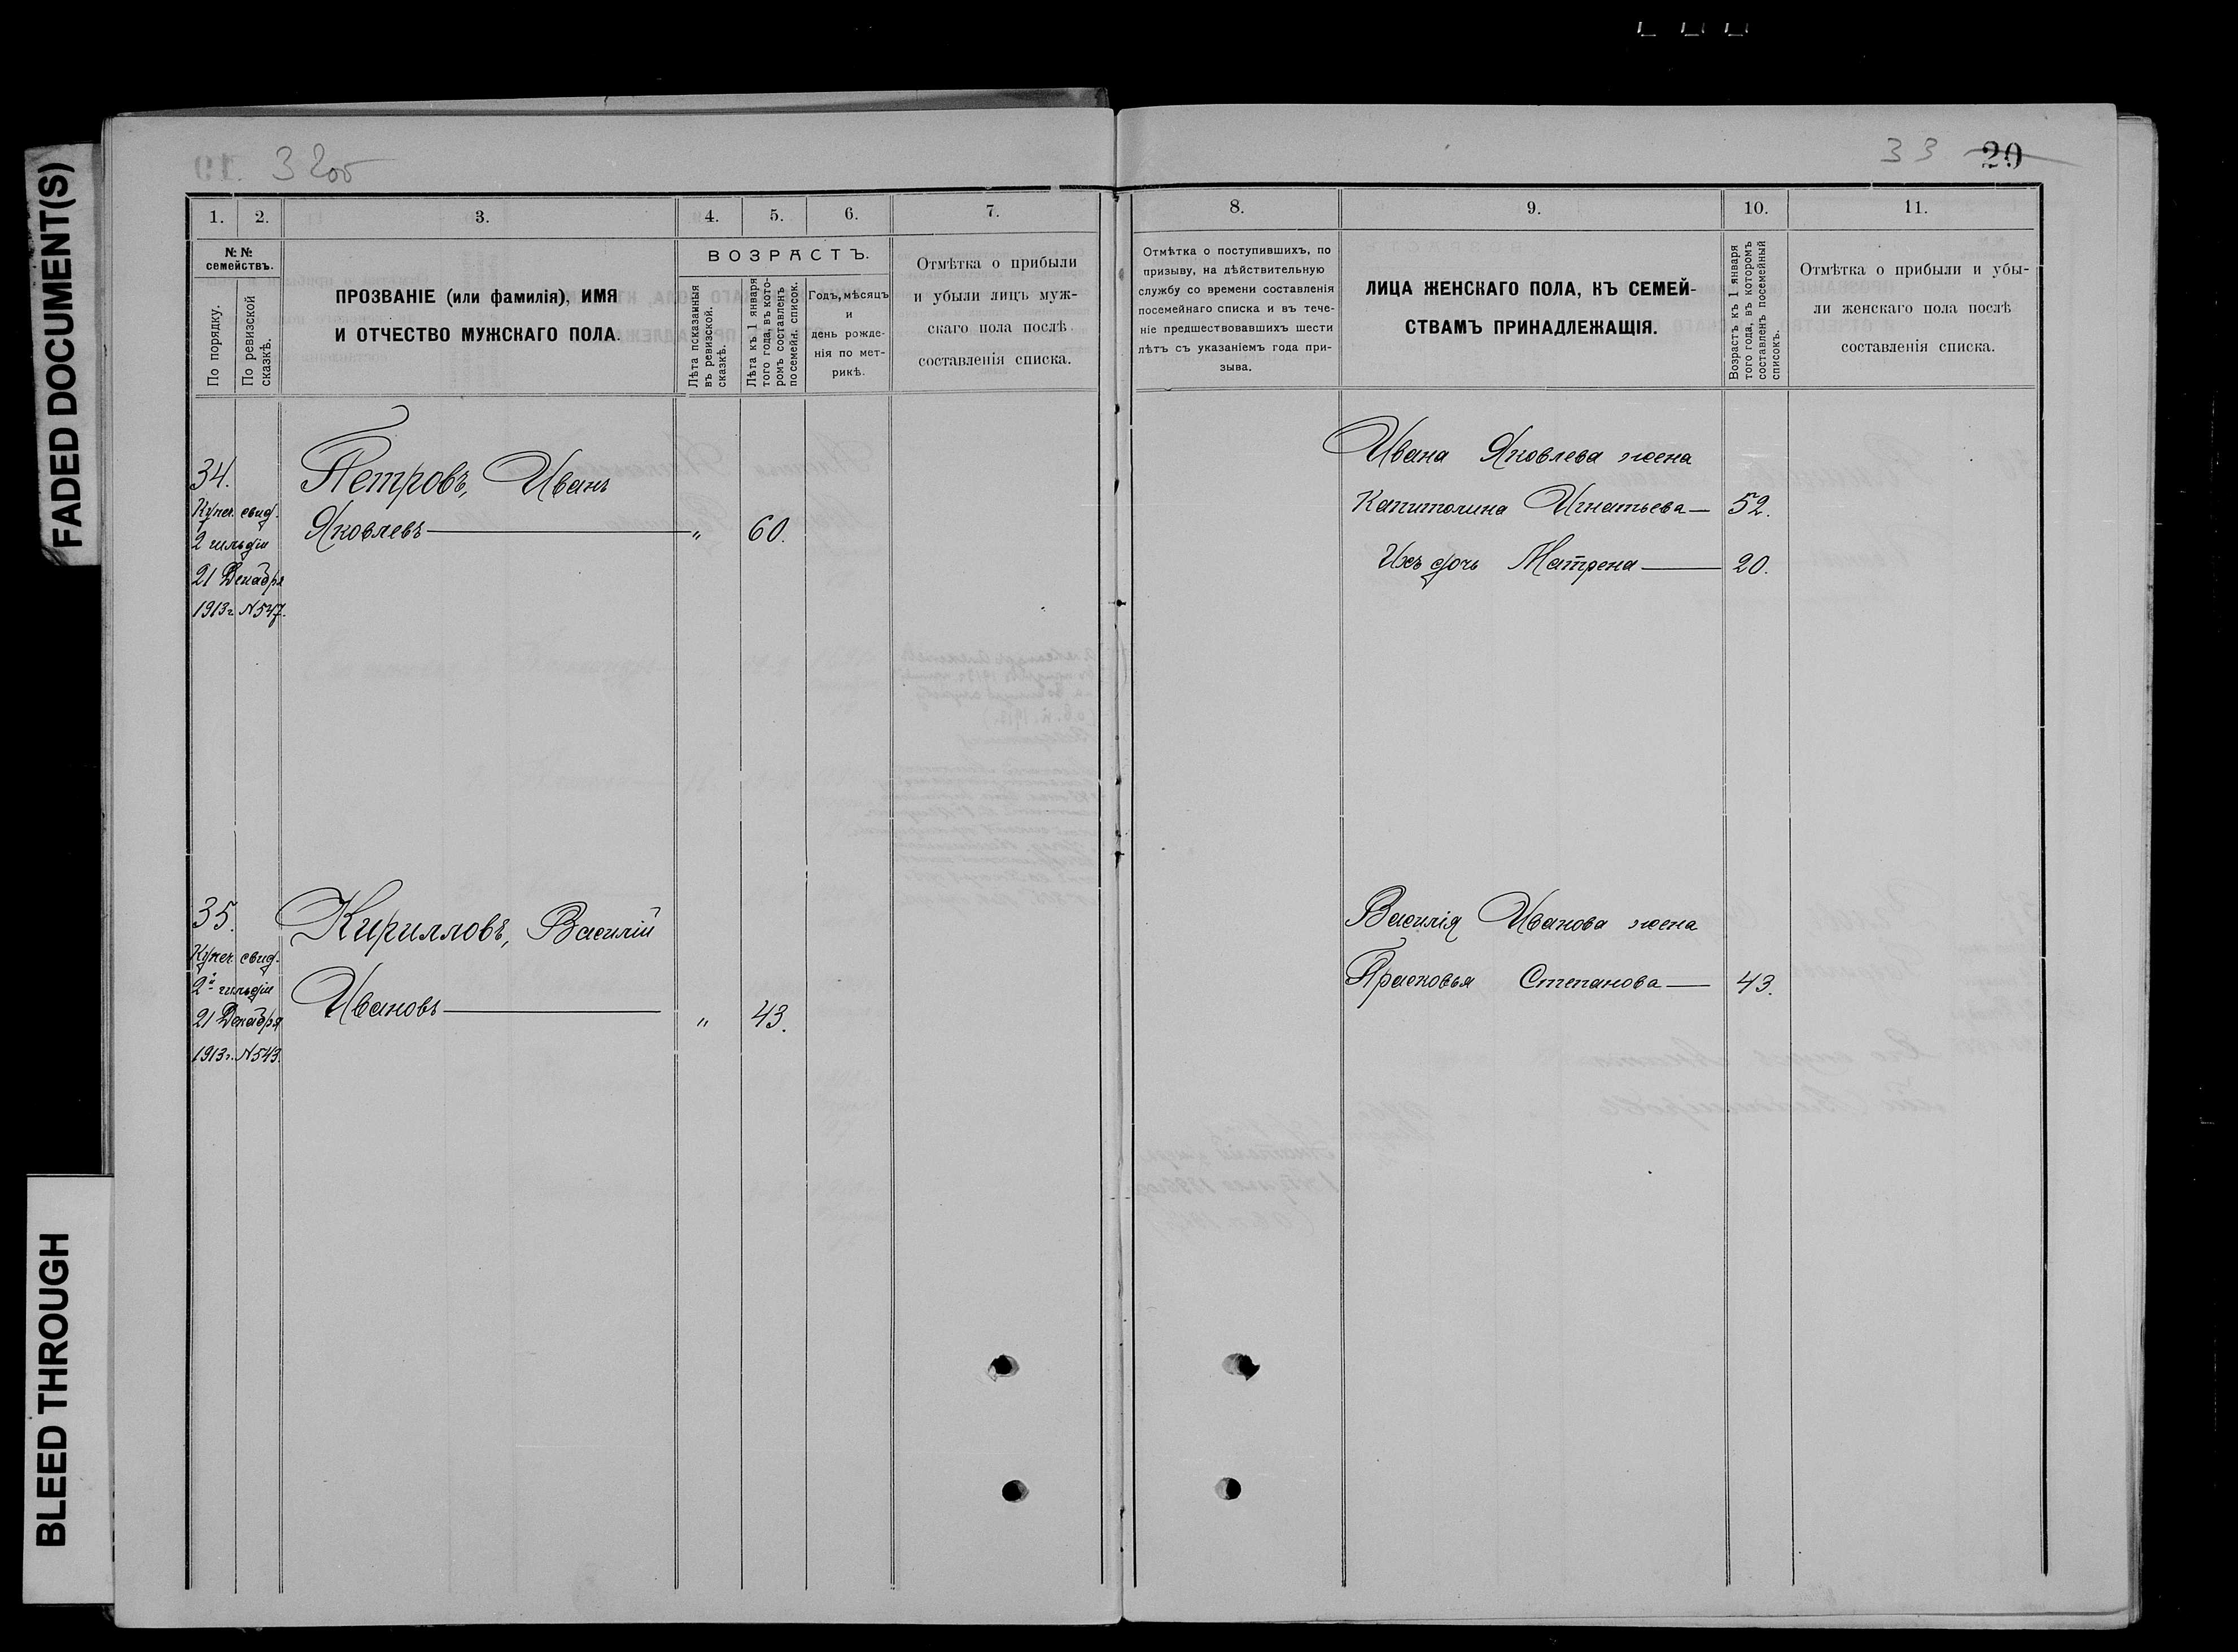 FADED DOCUMENT(S)
BLEED THROUGH
32об
33 20
1. 2. 3. 4. 5. 6. 7.
№ №
семействъ.
По порядку.
По ревизской
сказкѣ.
ПРОЗВАНІЕ (или фамилія), ИМЯ
И ОТЧЕСТВО МУЖСКАГО ПОЛА.
ВОЗРАСТЪ.
Лѣта показанныя
въ ревизской.
сказкѣ.
Лѣта къ 1 января
того года, въ кото-
ромъ составленъ
посемейн. список.
Годъ, мѣсяцъ
и
день рожде-
нія по мет-
рикѣ.
Отмѣтка о прибыли
и убыли лицъ муж-
скаго пола послѣ
составленія списка.
34.
Купеч. свид.
2 гильдіи
21 Декабря
1913г. N547.
Петровъ, Иванъ
Яковлевъ — „ 60.
35.
Купеч. свид.
2й гильдіи
21 Декабря
1913г. N543.
Кирилловъ, Василій
Ивановъ — „ 43.
8. 9. 10. 11.
Отмѣтка о поступившихъ, по
призыву, на дѣйствительную
службу со времени составленія
посемейнаго списка и въ тече-
ніе предшествовавшихъ шести
лѣтъ съ указаніемъ года при-
зыва.
ЛИЦА ЖЕНСКАГО ПОЛА, КЪ СЕМЕЙ-
СТВАМЪ ПРИНАДЛЕЖАЩІЯ.
Возрастъ къ 1 января
того года, въ которомъ
составленъ посемейный
списокъ.
Отмѣтка о прибыли и убы-
ли женскаго пола послѣ
составленія списка.
Ивана Яковлева жена
Капитолина Игнатьева — 52.
Ихъ дочь Матрена — 20.
Василія Иванова жена
Прасковья Степанова — 43.